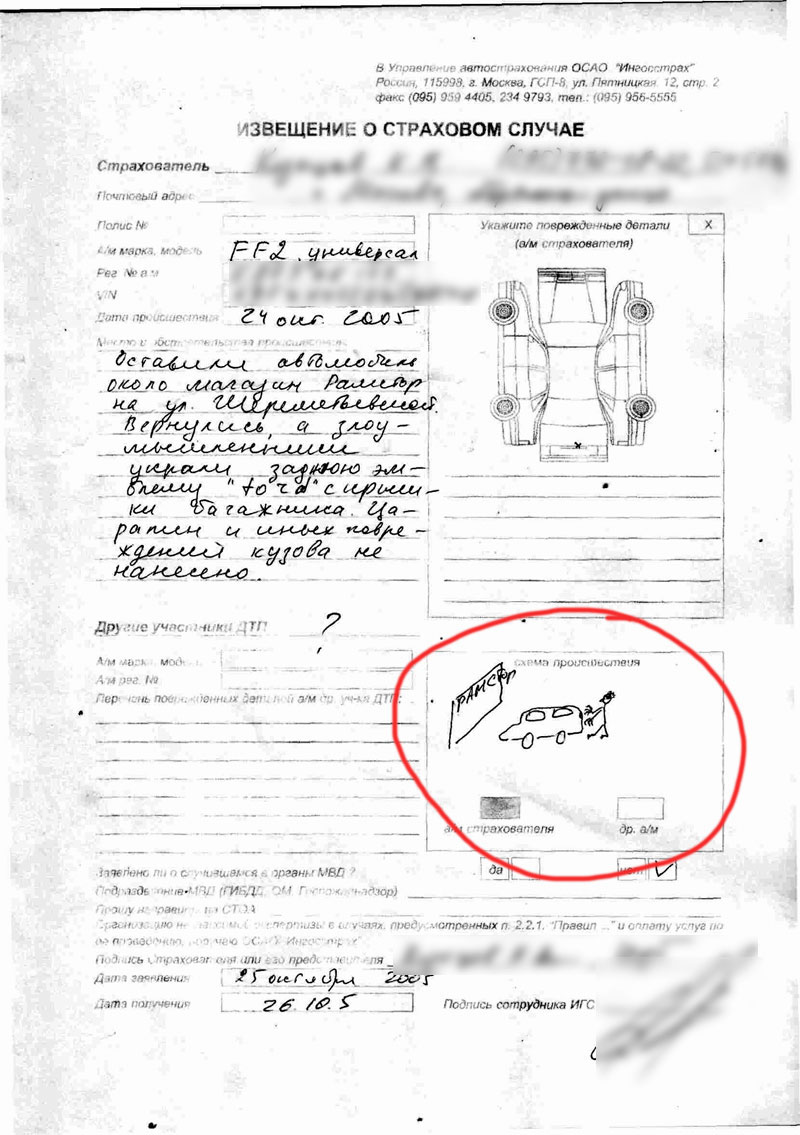 В Управление автострахования ОСАО "Ингосстрах"
Россия, 115998, г. Москва, ГСП-8, ул. Пятницкая, 12, стр. 2
факс (095) 959 4405, 234 9793, тел.: (095) 956-5555
ИЗВЕЩЕНИЕ О СТРАХОВОМ СЛУЧАЕ
Страхователь
Почтовый адрес
Полис №
А/м марка, модель FF2 универсал
Рег. № а/м
VIN
Дата происшествия 24 окт. 2005
Место и обстоятельства происшествия:
Оставили автомобиль
около магазин Рамстор
на ул. Шереметьевской.
Вернулись, а злоу-
мышленники
украли заднюю эм-
блему "ford" с крыш-
ки багажника. Ца-
рапин и иных повре-
ждений кузова не
нанесено.
Укажите поврежденные детали X
(а/м страхователя)
x
Другие участники ДТП ?
А/м марка, модель
А/м рег. №
Перечень поврежденных деталей а/м др. уч-ка ДТП:
схема происшествия
РАМСТОР
а/м страхователя др. а/м
Заявлено ли о случившемся в органы МВД ? да нет ✓
Подразделение МВД (ГИБДД, ОМ, Госпожнадзор)
Прошу направить на СТОА
Организацию независимой экспертизы в случаях, предусмотренных п. 2.2.1. "Правил ..." и оплату услуг по
ее проведению, поручаю ОСАО "Ингосстрах"
Подпись Страхователя или его представителя
Дата заявления 25 октября 2005
Дата получения 26.10.5 Подпись сотрудника ИГС